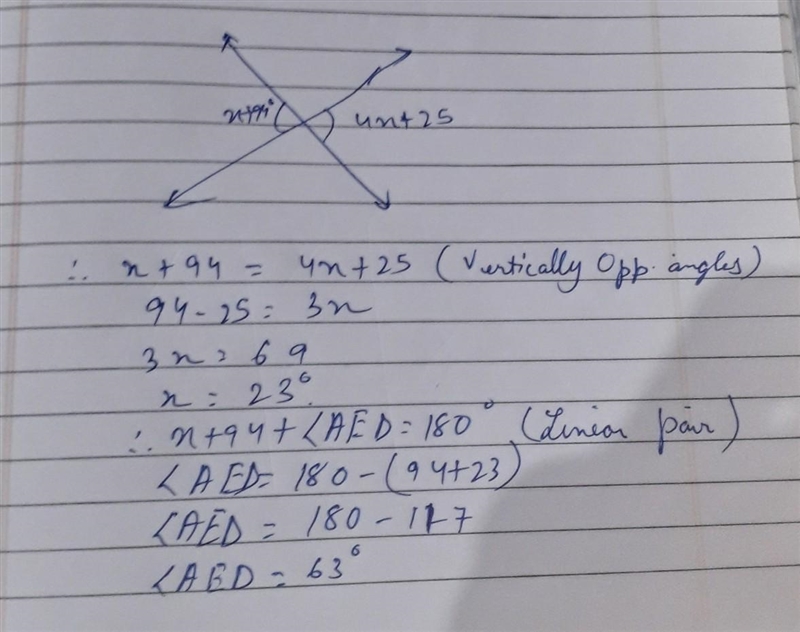 x+94°
4x+25
∴ x+94 = 4x+25 (Vertically Opp. angles)
94-25 = 3x
3x = 69
x = 23°.
∴ x+94+∠AED = 180° (Linear pair)
∠AED = 180-(94+23)
∠AED = 180-117
∠AED = 63°